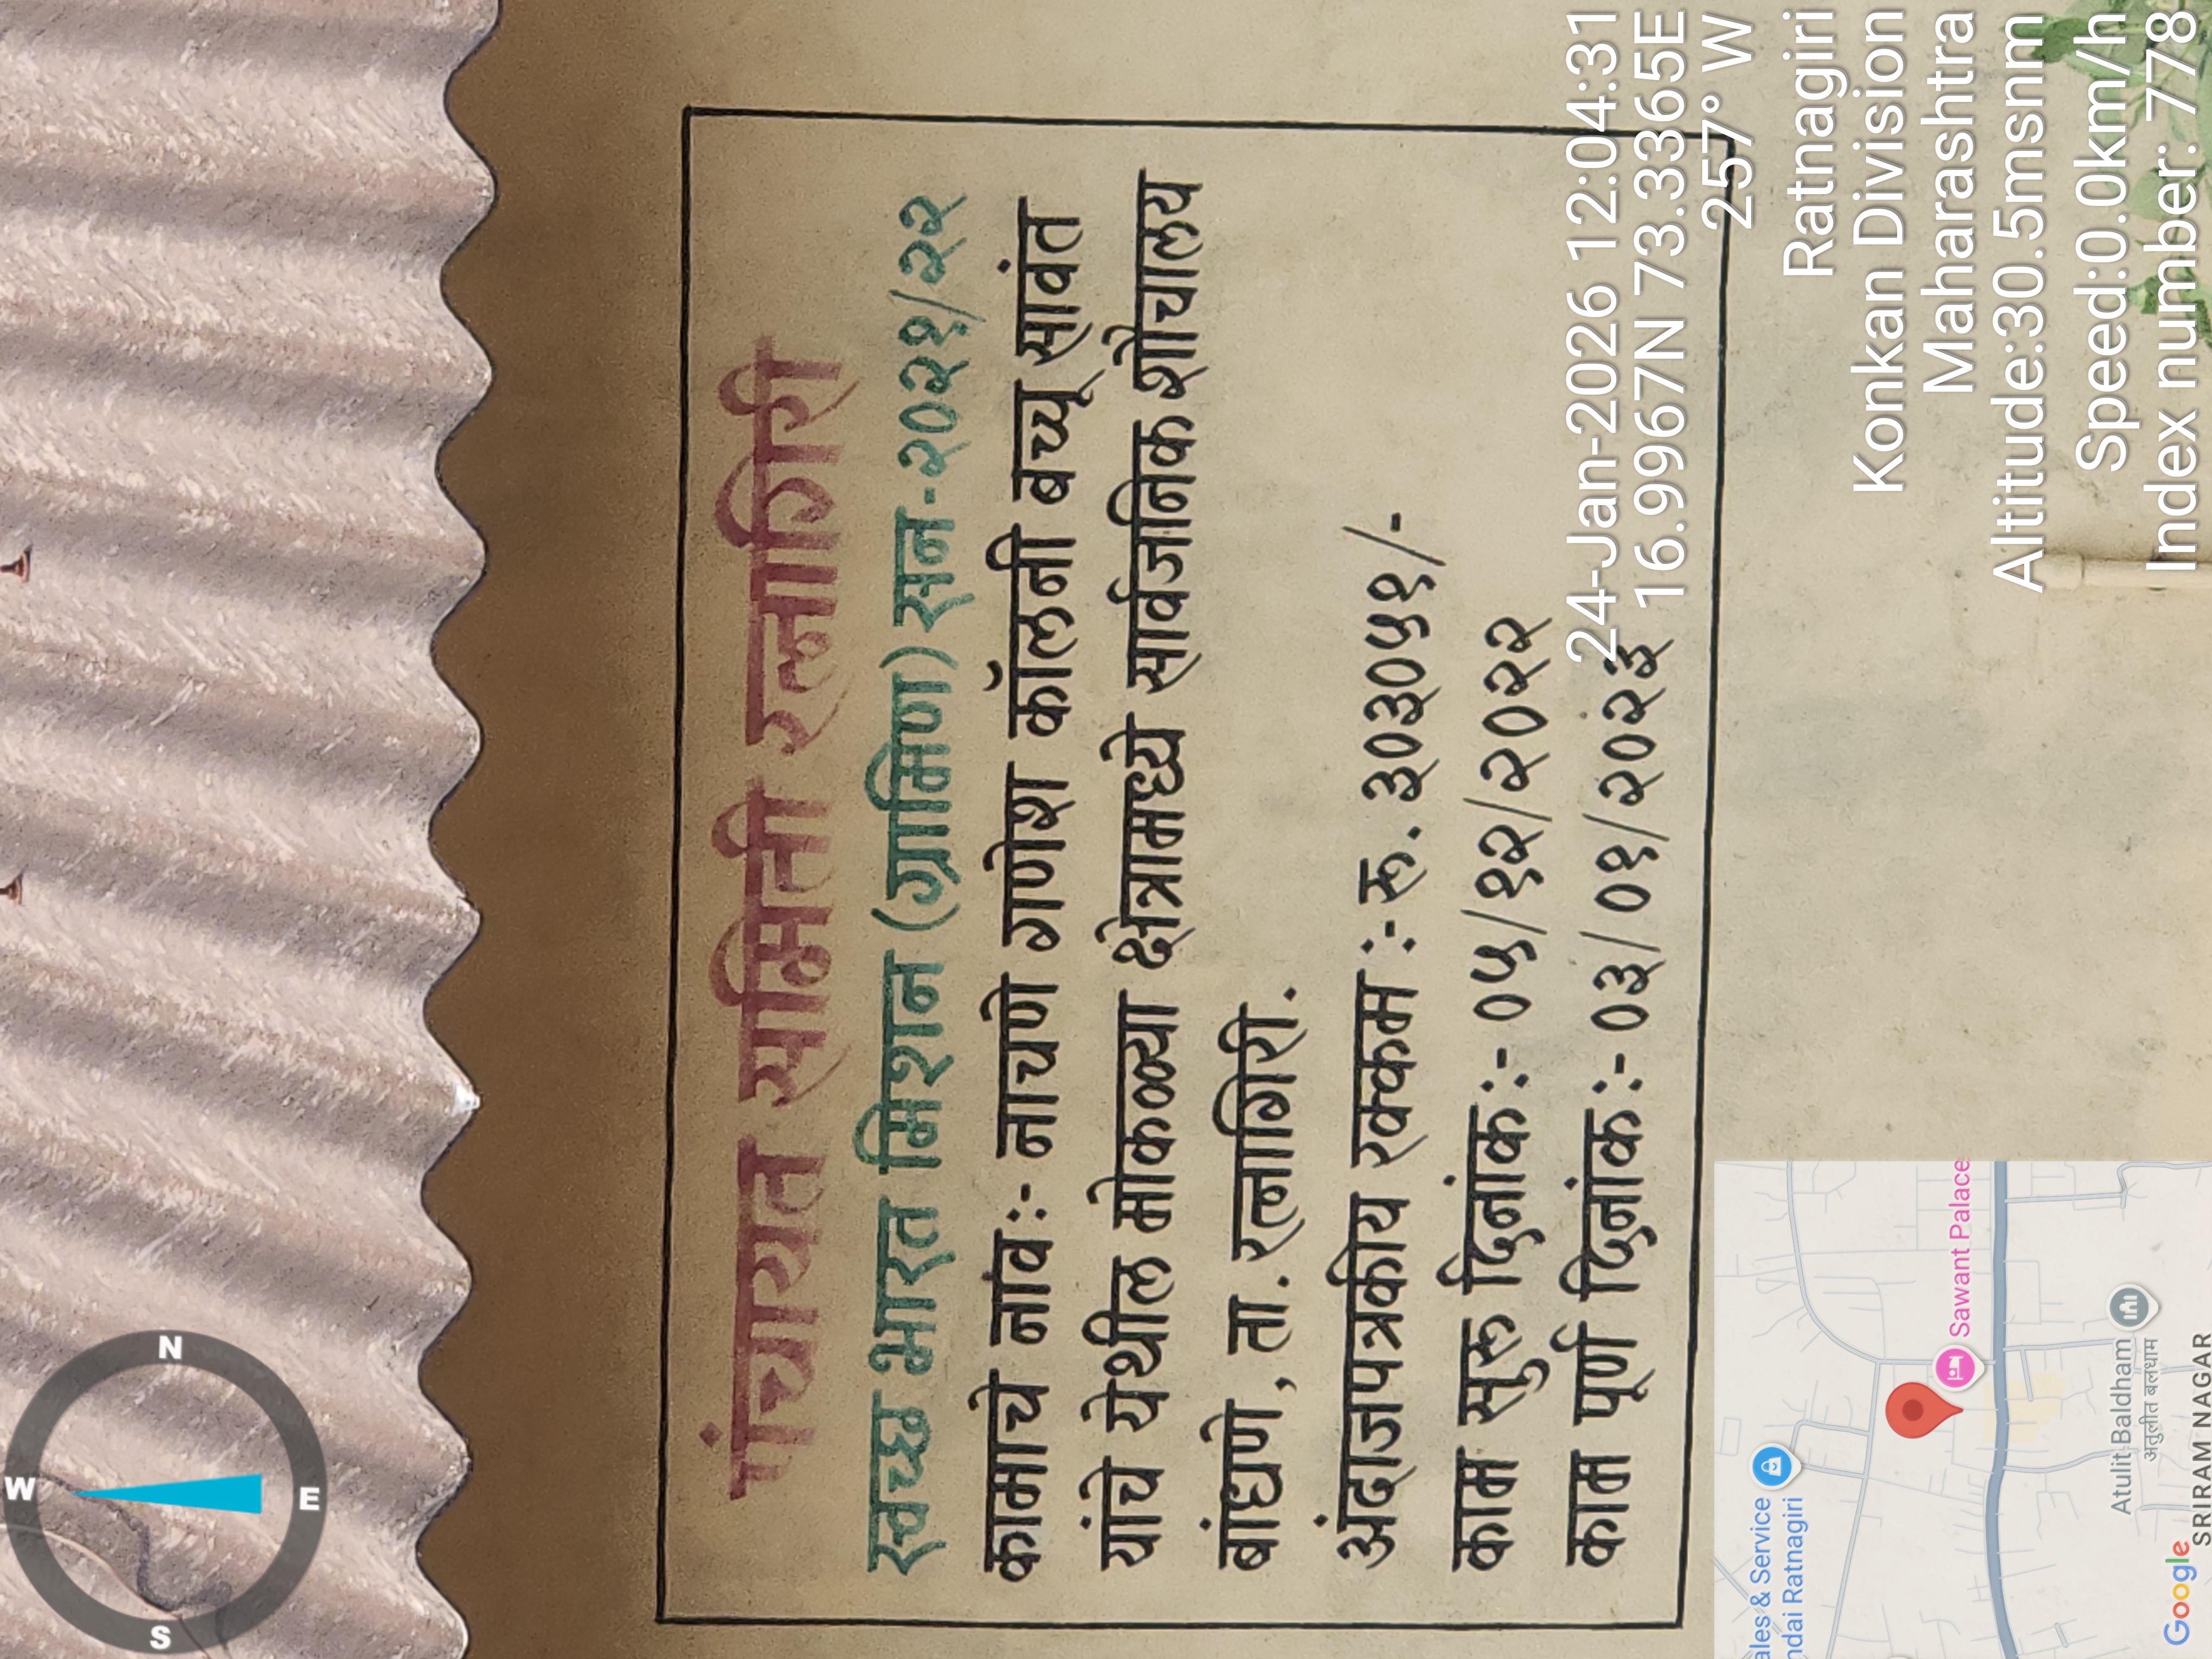 पंचायत समिती रत्नागिरी
स्वच्छ भारत मिशन (ग्रामिण) सन-२०२१/२२
कामाचे नांव:- नाचणे गणेश कॉलनी बच्चू सावंत
यांचे येथील मोकळ्या क्षेत्रामध्ये सार्वजनिक शौचालय
बांधणे, ता. रत्नागिरी.
अंदाजपत्रकीय रक्कम :- रू. ३०३०५१/-
काम सुरू दिनांक:- ०५/१२/२०२२
काम पूर्ण दिनांक:- ०३/०१/२०२३
24-Jan-2026 12:04:31
16.9967N 73.3365E
257° W
Ratnagiri
Konkan Division
Maharashtra
Altitude:30.5msnm
Speed:0.0km/h
Index number: 778
N
W
E
S
ales & Service
ndai Ratnagiri
Sawant Palace
Atulit Baldham
अतुलीत बलधाम
SRIRAM NAGAR
Google